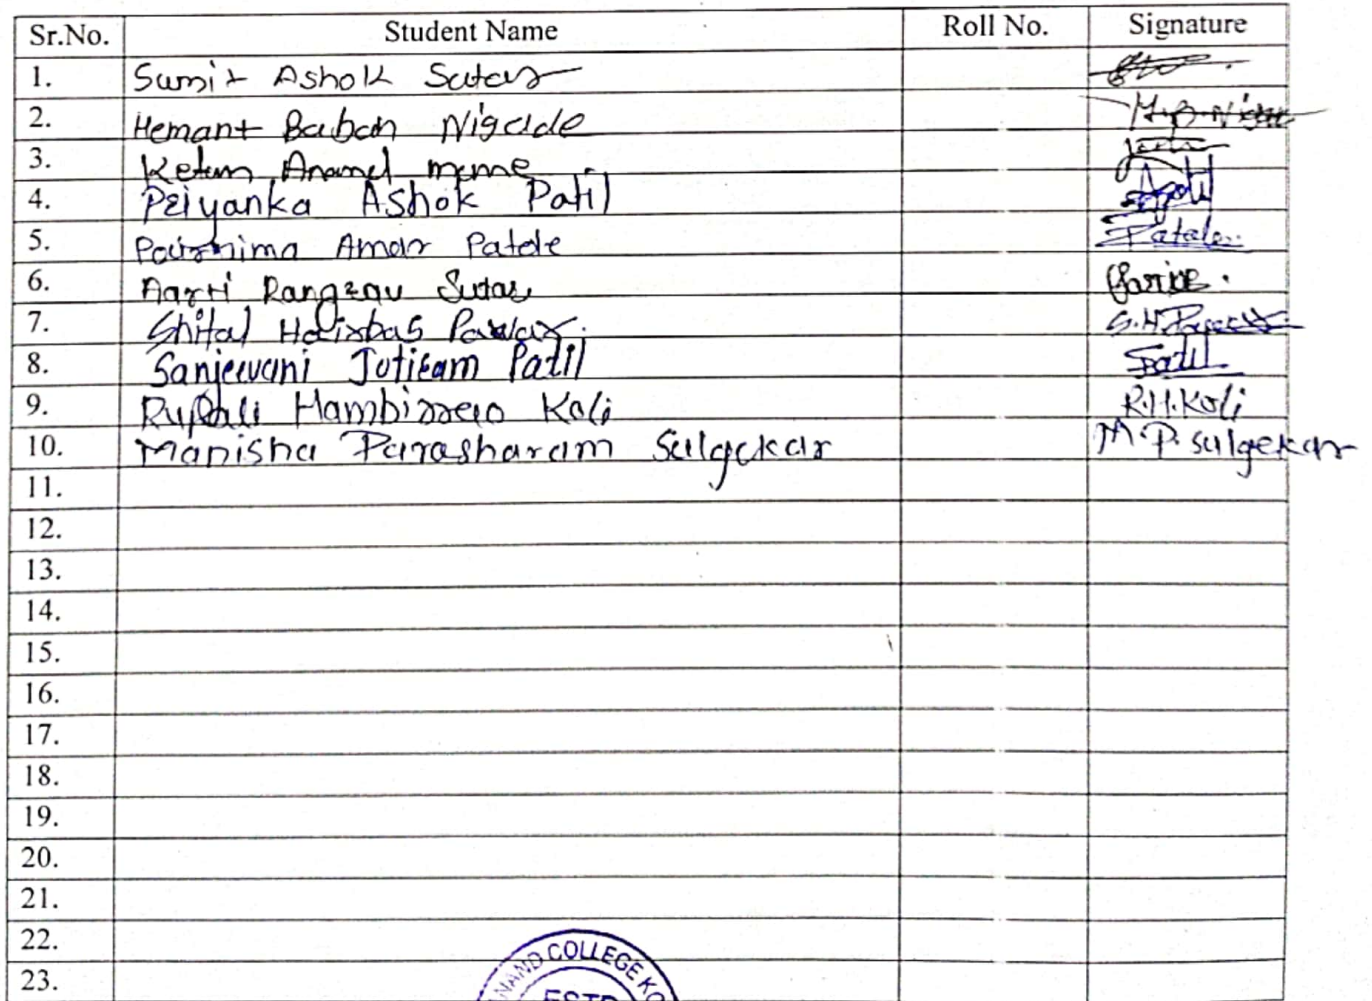 Sr.No. Student Name Roll No. Signature
1. Sumit Ashok Sutar
2. Hemant Baban Nigade
3. Ketan Anand mane
4. Priyanka Ashok Patil Apatil
5. Pournima Amar Patole Patole
6. Aarti Rangrau Sutar
7. Shital Hairbas Pawar. S.H.Pawar
8. Sanjeevani Jotiram Patil Spatil
9. Rupali Hambirrao Koli R.H.Koli
10. Manisha Parasharam Sulgekar M.P.sulgekar
11.
12.
13.
14.
15.
16.
17.
18.
19.
20.
21.
22.
23.
NAND COLLEGE KO
ESTD